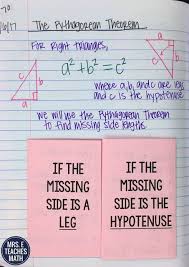 The Pythagorean Theorem
For Right Triangles,
a² + b² = c²
where a, b, and c are legs
and c is the hypotenuse
c
a
b
a
b
c
We will use the Pythagorean Theorem
to find missing side lengths.
IF THE
MISSING
SIDE IS A
LEG
IF THE
MISSING
SIDE IS THE
HYPOTENUSE
MRS. E
TEACHES
MATH